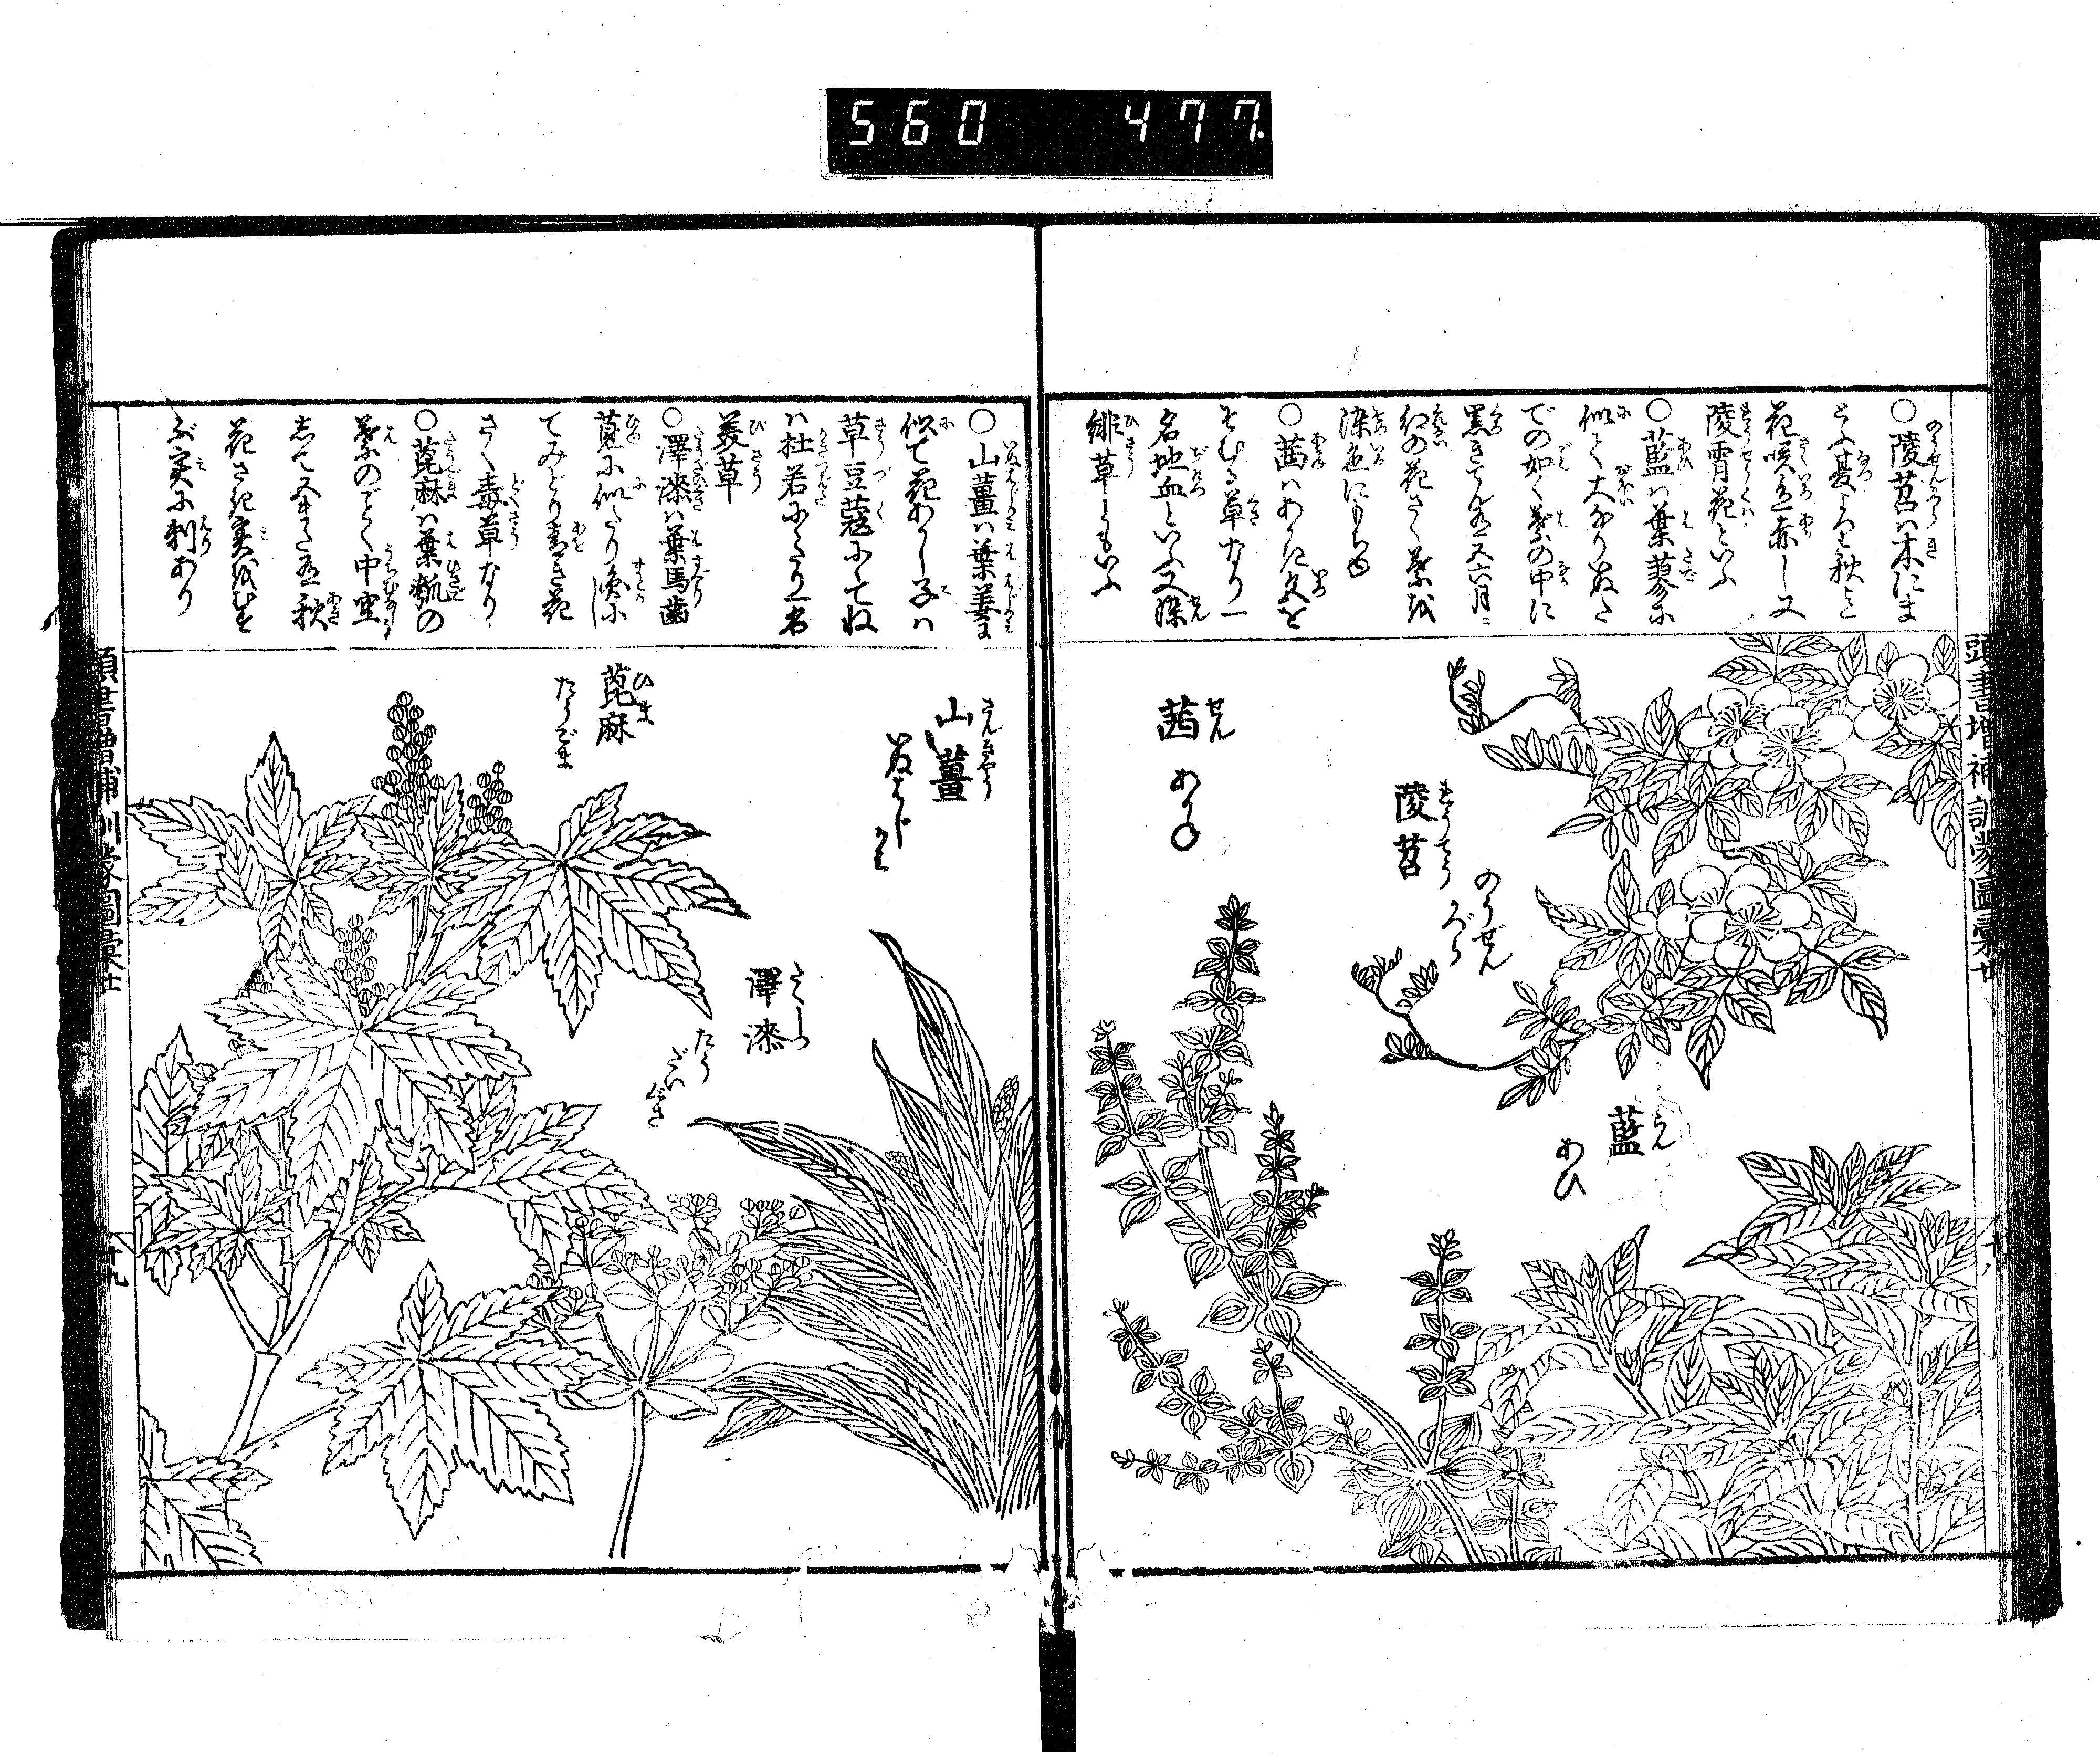 560 477.
頭書増補訓蒙圖彙廿
○陵苕ハ木にま
とふ夏より秋まで
花咲色赤し又
陵霄花といふ
○藍ハ葉蓼に
似て大なりいぬた
での如く葉の中に
黒きてん有又六月ニ
紅の花さく葉を
染色にもちゆ
○茜ハあかね又を
そむる草なり一
名地血といふ又𦾔
緋草ともいふ
陵苕
のうぜん
かづら
藍 らん
あひ
茜 せん
あかね
○山薑ハ葉姜に
似て花あかし子ハ
草豆蔲にて根
ハ杜若にたり一名
美草
○澤漆ハ葉馬歯
莧に似たり
てみどり青き花
さく毒草なり
○蓖麻ハ葉瓠の
葉のごとく中空に
して又まだら秋
花さき実をむす
ぶ実に刺あり
山薑
いぬはじかみ
澤漆
たう
だい
ぐさ
蓖麻 ひま
たうごま
頭書増補訓蒙圖彙廿
十九